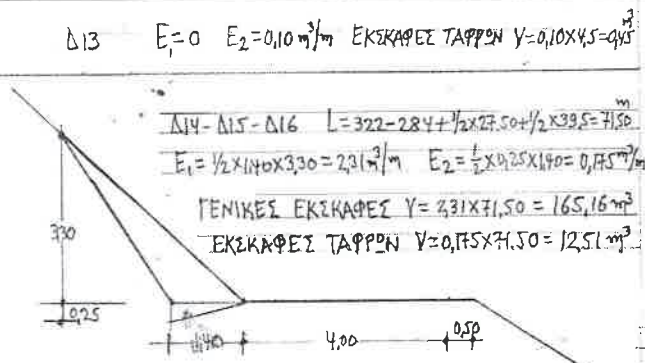 Δ13 E₁=0 E₂=0,10 m³/m ΕΚΣΚΑΦΕΣ ΤΑΦΡΩΝ V=0,10×4,5=0,45 m³
Δ14-Δ15-Δ16 L=322-284+1/2×27.50+1/2×39,5=71,50 m
E₁=1/2×1,40×3,30=2,31 m³/m E₂=1/2×0,25×1,40=0,175 m³/m
ΓΕΝΙΚΕΣ ΕΚΣΚΑΦΕΣ V=2,31×71,50=165,16 m³
ΕΚΣΚΑΦΕΣ ΤΑΦΡΩΝ V=0,175×71.50=12,51 m³
3,30
0,25
1,40 4,00 0,50